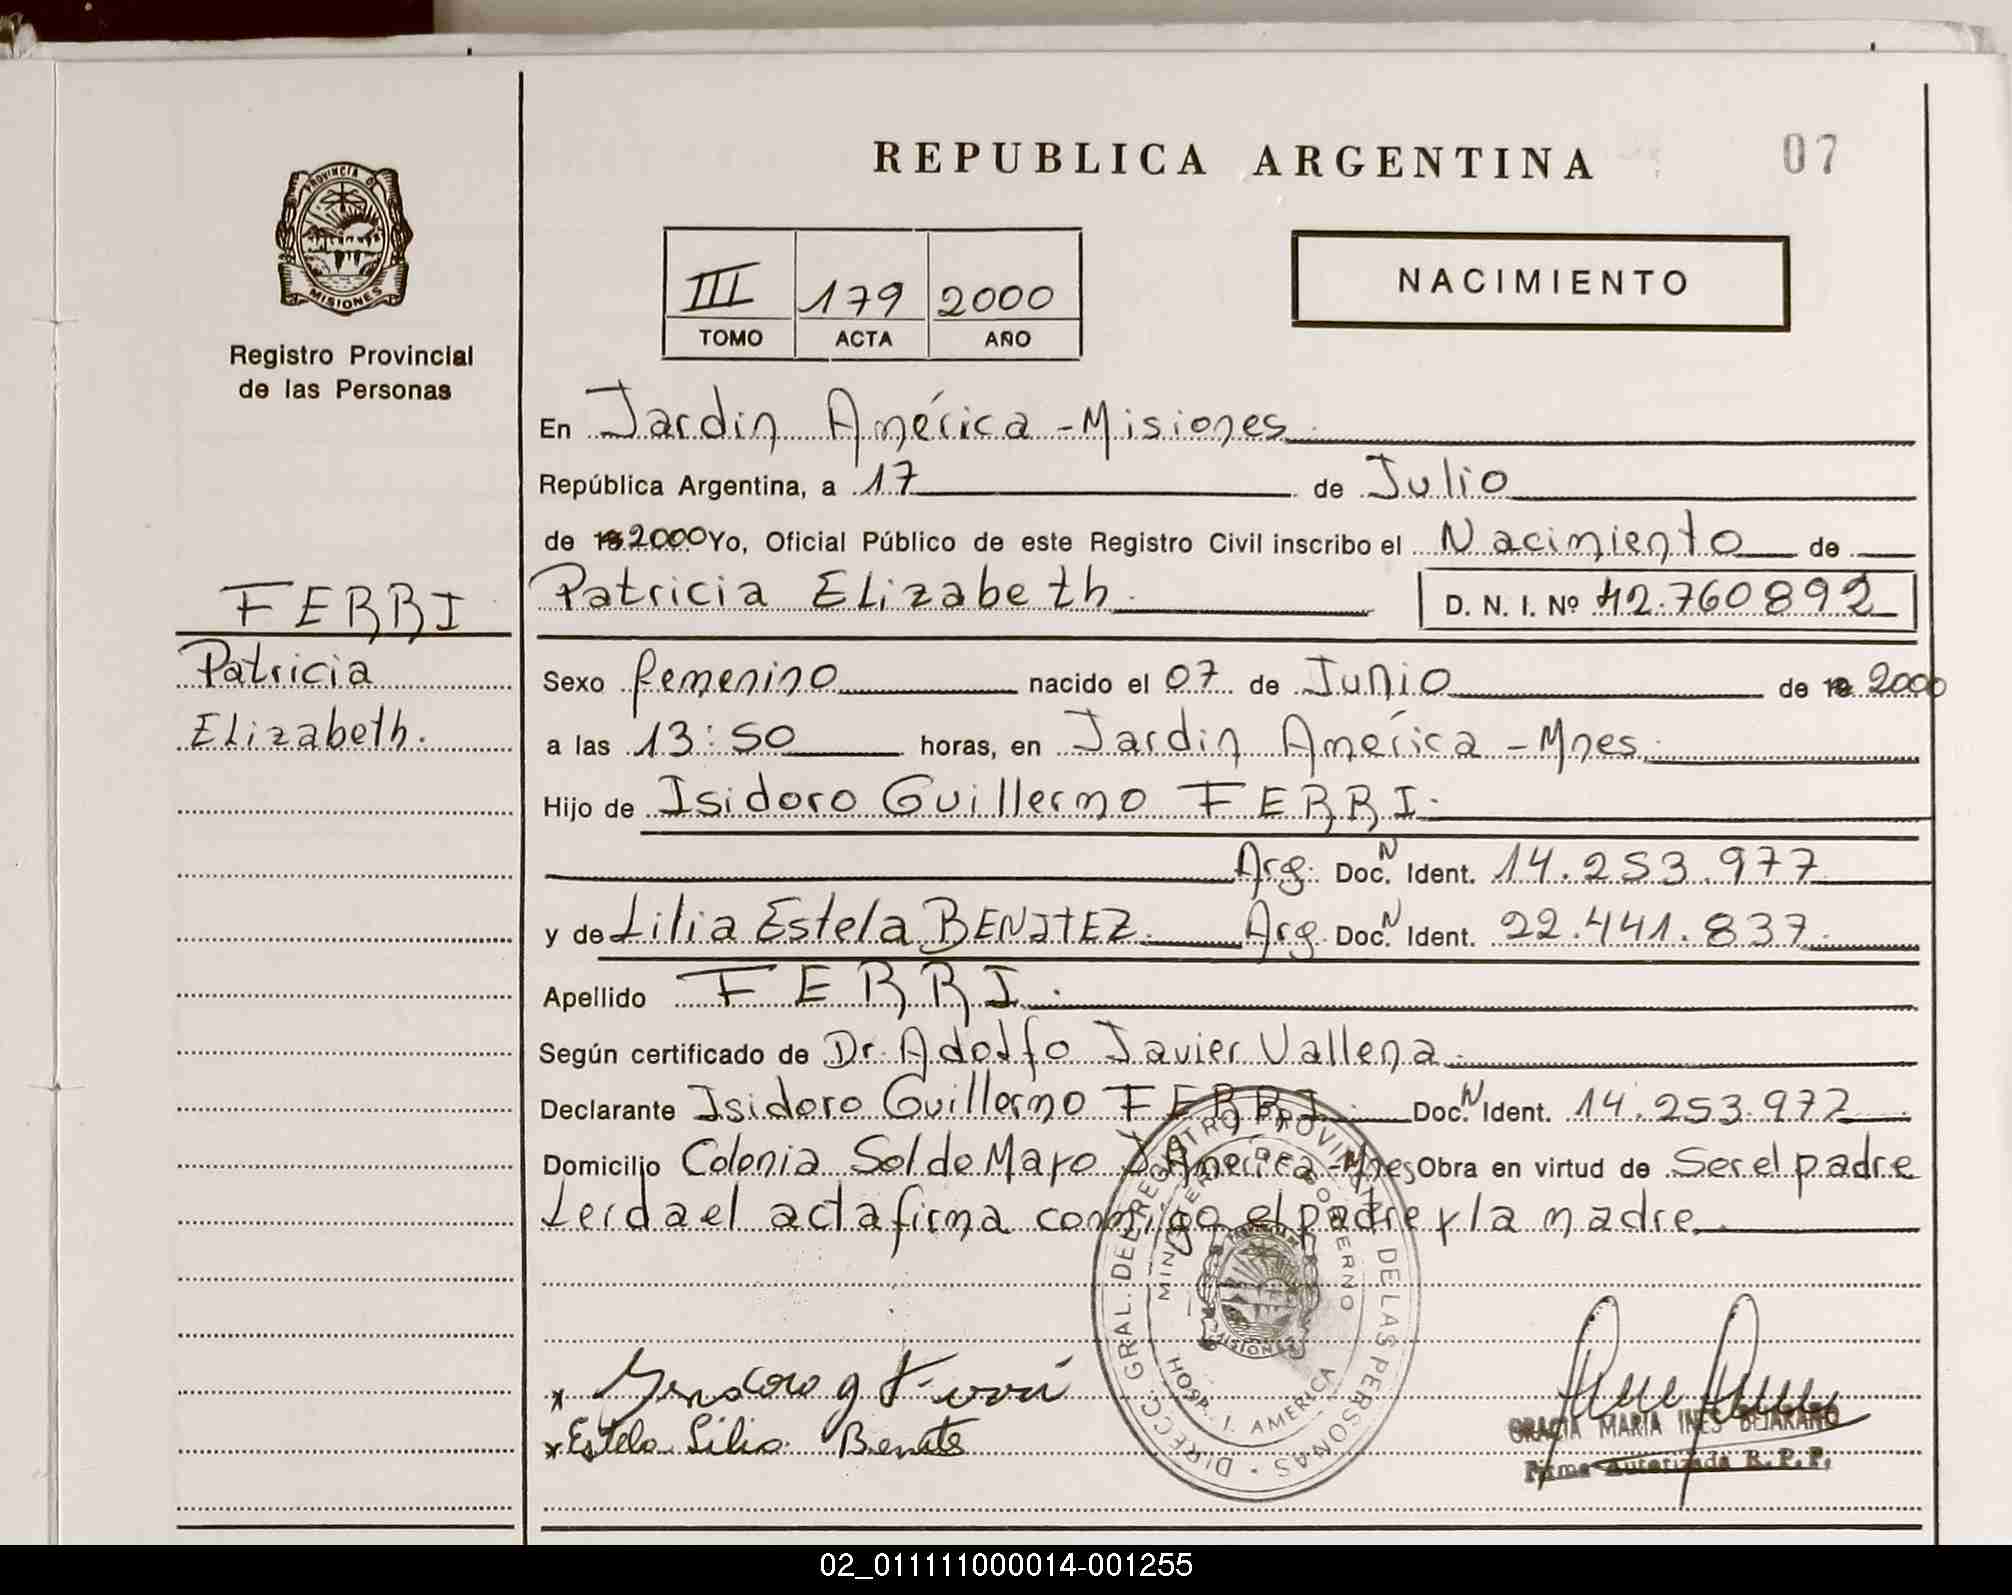 REPUBLICA ARGENTINA
07
PROVINCIA DE
MISIONES
Registro Provincial
de las Personas
III 179 2000
TOMO ACTA AÑO
NACIMIENTO
En Jardin América - Misiones
República Argentina, a 17 de Julio
de 19 2000 Yo, Oficial Público de este Registro Civil inscribo el Nacimiento de
FERRI
Patricia
Elizabeth.
Patricia Elizabeth D. N. I. Nº 42.760892
Sexo femenino nacido el 07 de Junio de 19 2000
a las 13:50 horas, en Jardin América - Mnes.
Hijo de Isidoro Guillermo FERRI.
Arg. Doc. N Ident. 14.253.977
y de Lilia Estela BENITEZ. Arg. Doc. N Ident. 22.441.837.
Apellido FERRI.
Según certificado de Dr. Adolfo Javier Vallena.
Declarante Isidoro Guillermo FERRI. Doc. N Ident. 14.253.977
Domicilio Colonia Sol de Mayo J. América - Mnes Obra en virtud de Ser el padre
Leida el acta firma conmigo el padre y la madre.
DIRECC. GRAL. DEL REGISTRO PROVINCIAL DE LAS PERSONAS
MINISTERIO DE GOBIERNO
MISIONES
HOSP. J. AMERICA
x
x Estela Lilia Benites
GRACIA MARIA INES BEJARANO
Firma Autorizada R. P. P.
02_011111000014-001255